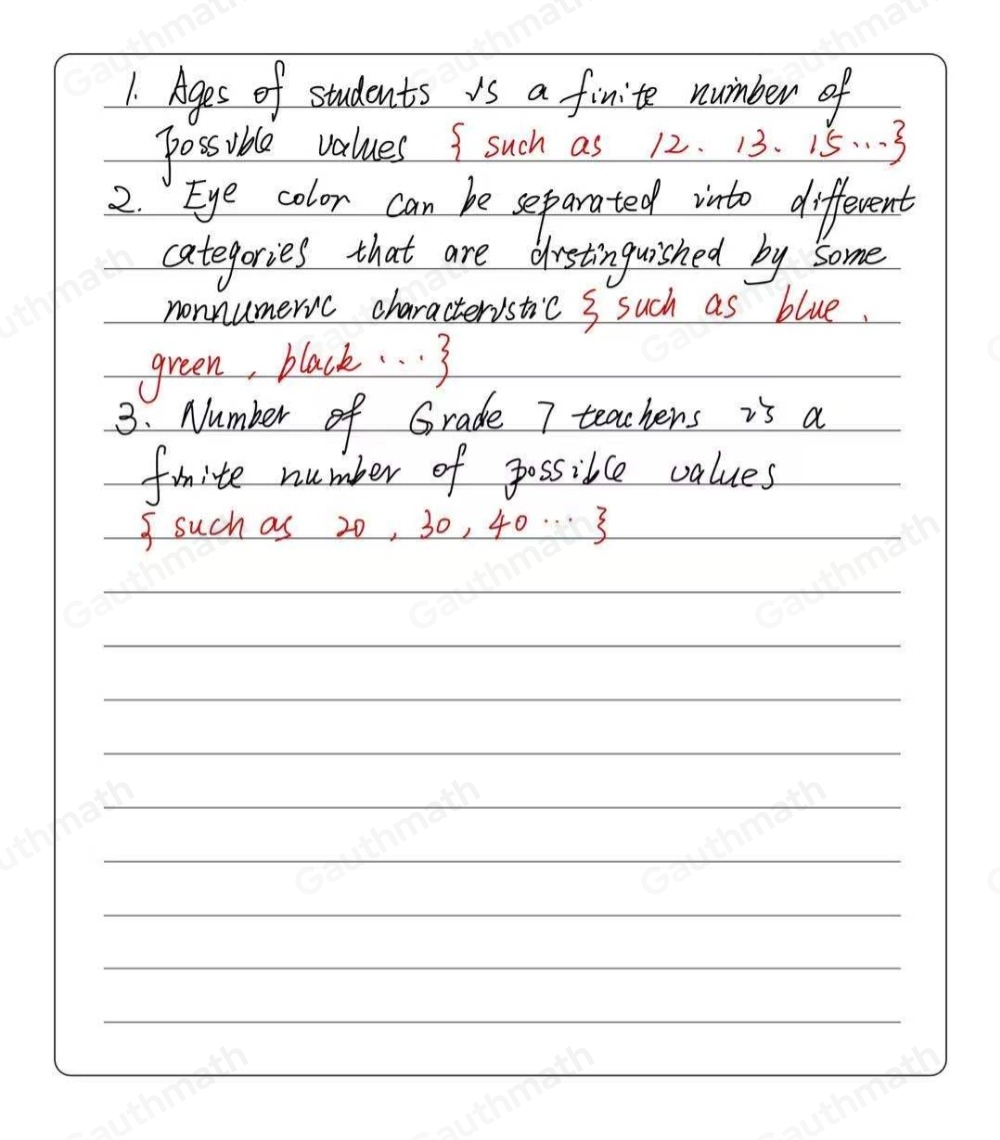 1. Ages of students is a finite number of
possible values { such as 12、13、15...}
2. Eye color can be separated into different
categories that are distinguished by some
nonnumeric characteristic { such as blue,
green, black ...}
3. Number of Grade 7 teachers is a
finite number of possible values
{ such as 20, 30, 40 ... }
Gauthmath